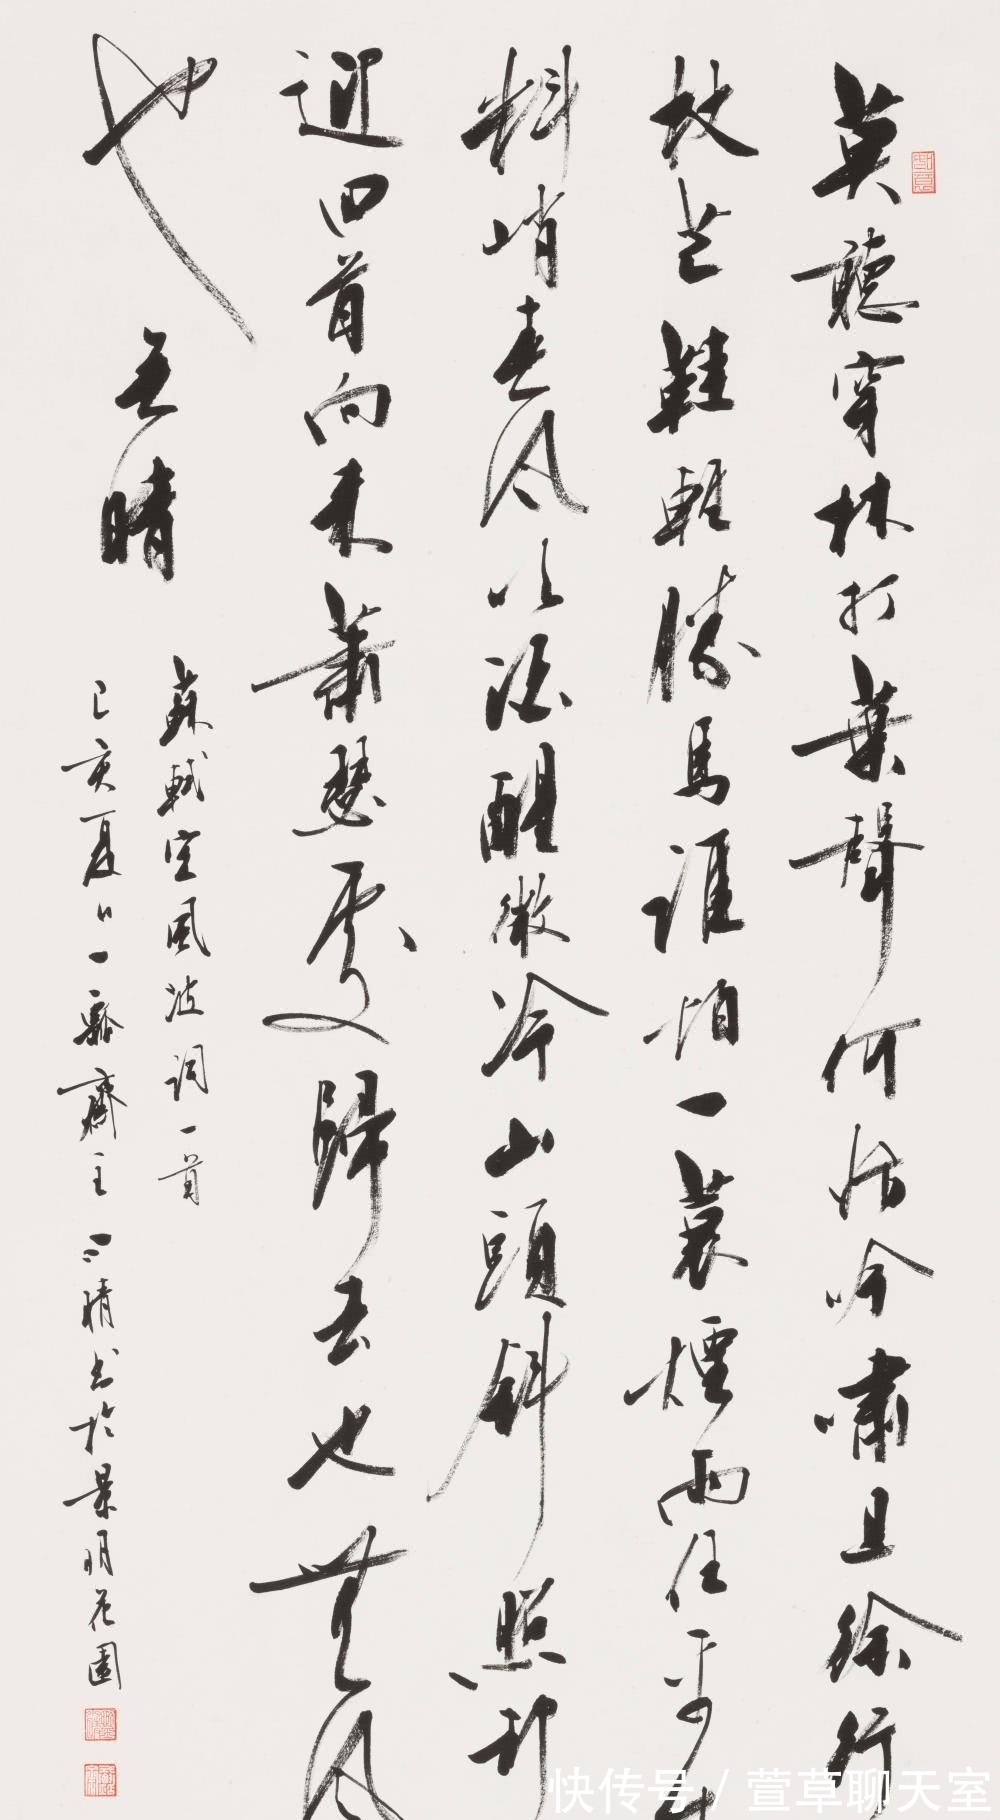 莫聽穿林打葉聲何妨吟嘯且徐行
杖芒鞋輕勝馬誰怕一蓑煙雨任平
料峭春風吹酒醒微冷山頭斜照却
迎回首向来蕭瑟處歸去也無風
也无晴
蘇軾定風波詞一首
己亥夏日一齋主晴书於景明花園
快传号 / 萱草聊天室